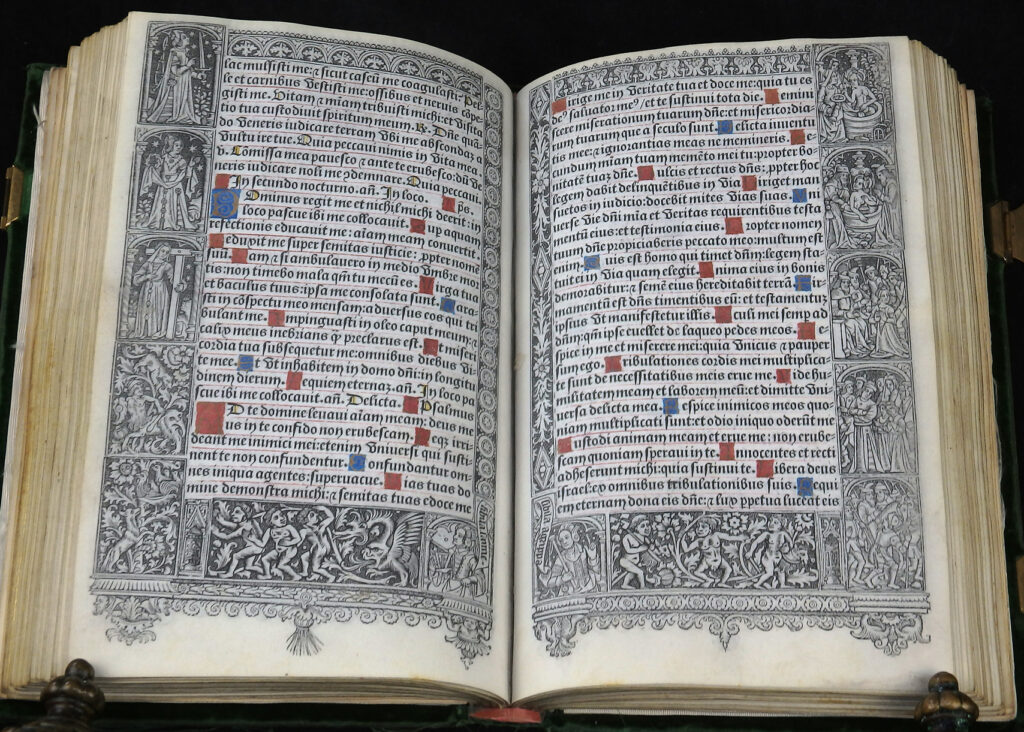 lac mulsisti me: ⁊ sicut caseū me coagulasti. Pel
le et carnibus vestisti me: ossibus et neruis cōpe
gisti me. Vitam ⁊ miam tribuisti michi: et visita
tio tua custodiuit spiritum meum. ℟. Dñe quā
do veneris iudicare terram vbi me abscondā a
vultu ire tue. Quia peccaui nimis in vita mea.
v. Cōmissa mea pauesco ⁊ ante te erubesco: dū ve
neris iudicare noli me ꝯdemnare. Quia peccaui.
In secundo nocturno. añ. In loco. ps.
Dominus regit me et nichil michi deerit: in
loco pascue ibi me collocauit. Sup aquam
refectionis educauit me: aīam meam conuertit.
Deduxit me super semitas iusticie: ꝓpter nomē
suū. Nam ⁊ si ambulauero in medio vmbre mor
tis: non timebo mala qm̄ tu mecū es. Virga tua
et baculus tuus: ipsa me consolata sunt. Para
sti in cōspectu meo mensam: aduersus eos qui tri
bulant me. Impinguasti in oleo caput meū: et
calix meus inebrians q̄ preclarus est. Et miseri
cordia tua subsequetur me: omnibus diebus vi
te mee. Et vt inhabitem in domo dn̄i: in longitu
dinem dierum. Requiem eternaꝫ. añ. In loco pa
scue ibi me collocauit. añ. Delicta. Psalmus
Ad te domine leuaui aīam meam: deus me
us in te confido non erubescam. Neqꝫ irri
deant me inimici mei: etenim vniuersi qui susti
nent te non confundentur. Confundantur om
nes iniqua agentes: superuacue. Vias tuas do
mine demonstra michi: ⁊ semitas tuas edoce me
Dirige me in veritate tua et doce me: quia tu es
deꝰ saluator meꝰ/ et te sustinui tota die. Remini
scere miserationum tuarum dñe: et misericordia
rum tuarum que a seculo sunt. Delicta iuuentu
tis mee: ⁊ ignorantias meas ne memineris. Se
cundum miam tuam memēto mei tu: ꝓpter bo
nitatē tuaꝫ dñe. Dulcis et rectus dn̄s: ꝓpter hoc
legem dabit delinquētibus in via. Diriget man
suetos in iudicio: docebit mites vias suas. Vni
uerse vie dn̄i mīa et veritas requirentibus testa
mentū eius: et testimonia eius. Propter nomen
tuum dñe propiciaberis peccato meo: multum est
enim. Quis est homo qui timet dn̄m: legem statu
it ei in via quam elegit. Anima eius in bonis
demorabitur: ⁊ semē eius hereditabit terrā. Fir
mamentū est dn̄s timentibus eū: et testamentuꝫ
ipsius vt manifestetur illis. Oculi mei semp ad
dn̄m: qm̄ ipse euellet de laqueo pedes meos. Re
spice in me et miserere mei: quia vnicus ⁊ pauper
sum ego. Tribulationes cordis mei multiplica
te sunt: de necessitatibus meis erue me. Vide hu
militatem meam et laborem meū: et dimitte vni
uersa delicta mea. Respice inimicos meos quo
niam multiplicati sunt: et odio iniquo oderūt me
Custodi animam meam et erue me: non erube
scam quoniam speraui in te. Innocentes et recti
adheserunt michi: quia sustinui te. Libera deus
israel: ex omnibus tribulationibus suis. Requi
em eternam dona eis dñe: ⁊ lux ꝑpetua luceat eis